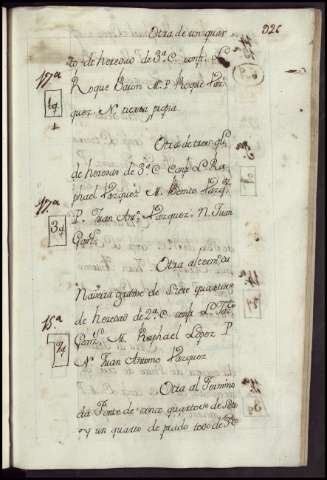 Otra de un quar
326
to de heredad de 3ª C. confª L.
17ª
Roque Bason M. P. Roque Vaz
1q
quez N. tierra propia
Otra de tres qˢ
de heredad de 3ª C. Confª L. Ra
phael Vazquez M. Benito Vazqᶻ
17ª
P. Juan Antº Vazquez N. Juan
3q
Gonzˢ
Otra al termº da
Naveira grande de Siete quartos
de heredad de 2ª C. confª L.
15ª
Gonzˢ M. Raphael Lopez P.
7q
N. Juan Antonio Vazquez
Otra al Termino
da Fonte de cinco quartos de
y un quarto de prado todo de 3ª C